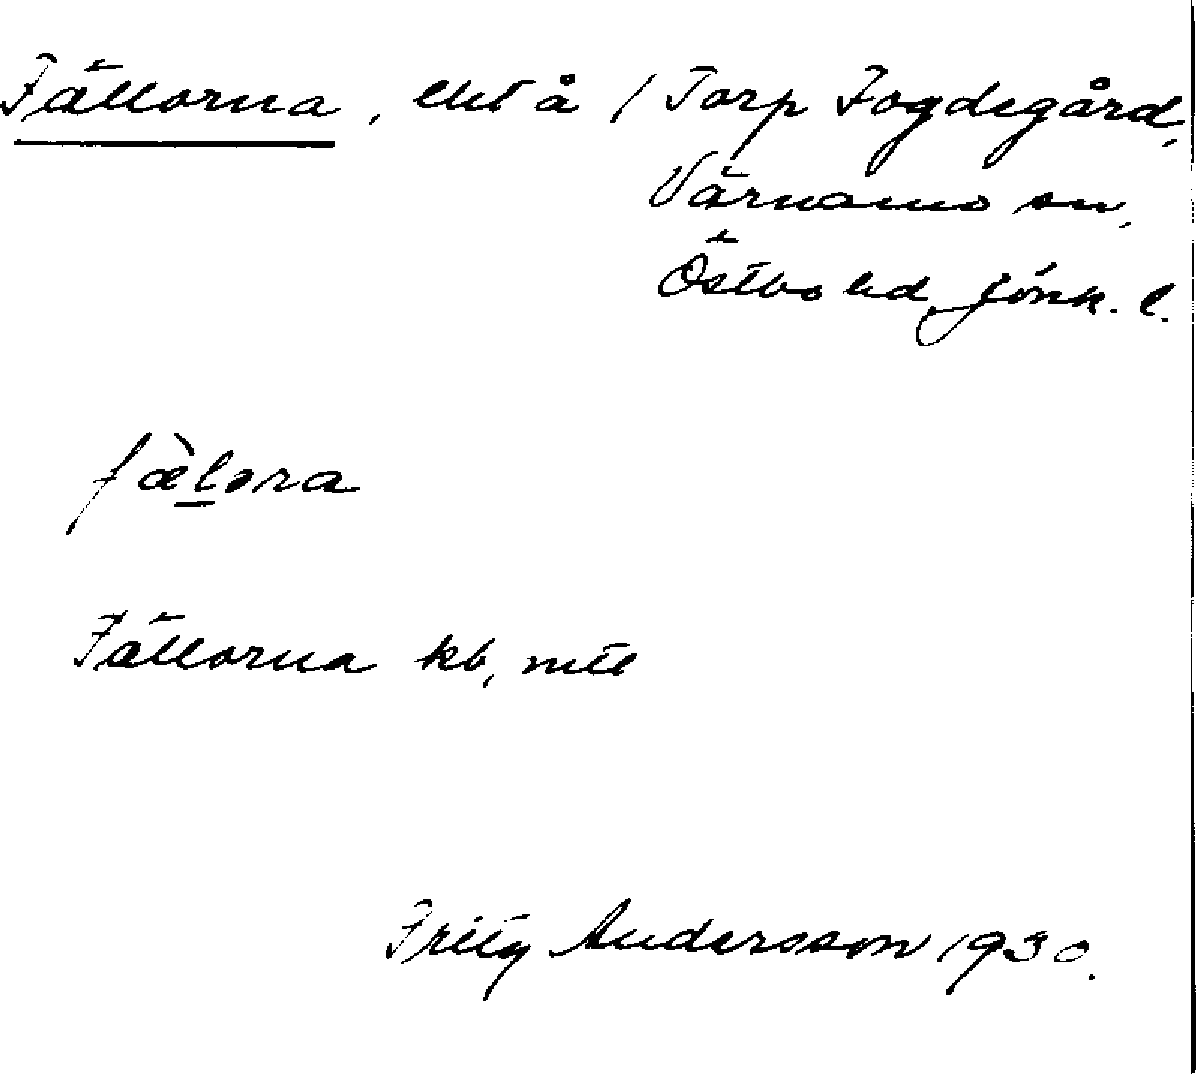 Fällorna, lht å 1 Torp Fogdegård,
Värnamo sn,
Östbo hd, Jönk. l.
fæ̀lora
Fällorna kb, mtl
Fritz Andersson 1930.